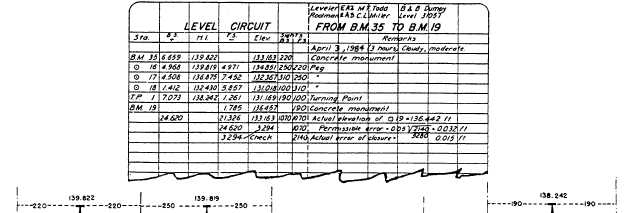 Leveler E.R.2 M.T. Todd B & B Dumpy
Rodman 2 A3 C.L. Miller Level 31057
LEVEL CIRCUIT FROM B.M. 35 TO B.M. 19
Sta. B.S. + H.I. F.S. - Elev. Sights B.S. F.S. Remarks
April 3, 1984 (3 hours, Cloudy, moderate
B.M. 35 6.659 139.822 133.163 220 Concrete monument
⊙ 16 4.968 139.819 4.971 134.851 250 220 Peg
⊙ 17 4.508 136.875 7.452 132.367 310 250 "
⊙ 18 1.412 132.430 5.857 131.018 100 310 "
T.P. 1 7.073 138.242 1.261 131.169 190 100 Turning Point
B.M. 19 1.785 136.457 190 Concrete monument
24.620 21.326 133.163 1070 1070 Actual elevation of ⊡ 19 = 136.442 ft
24.620 3.294 1070 Permissible error = 0.05 √2140/5280 = 0.032 ft
3.294 ✓ Check 2140 Actual error of closure = 0.015 ft
139.822 139.819 138.242
220 220 250 250 190 190